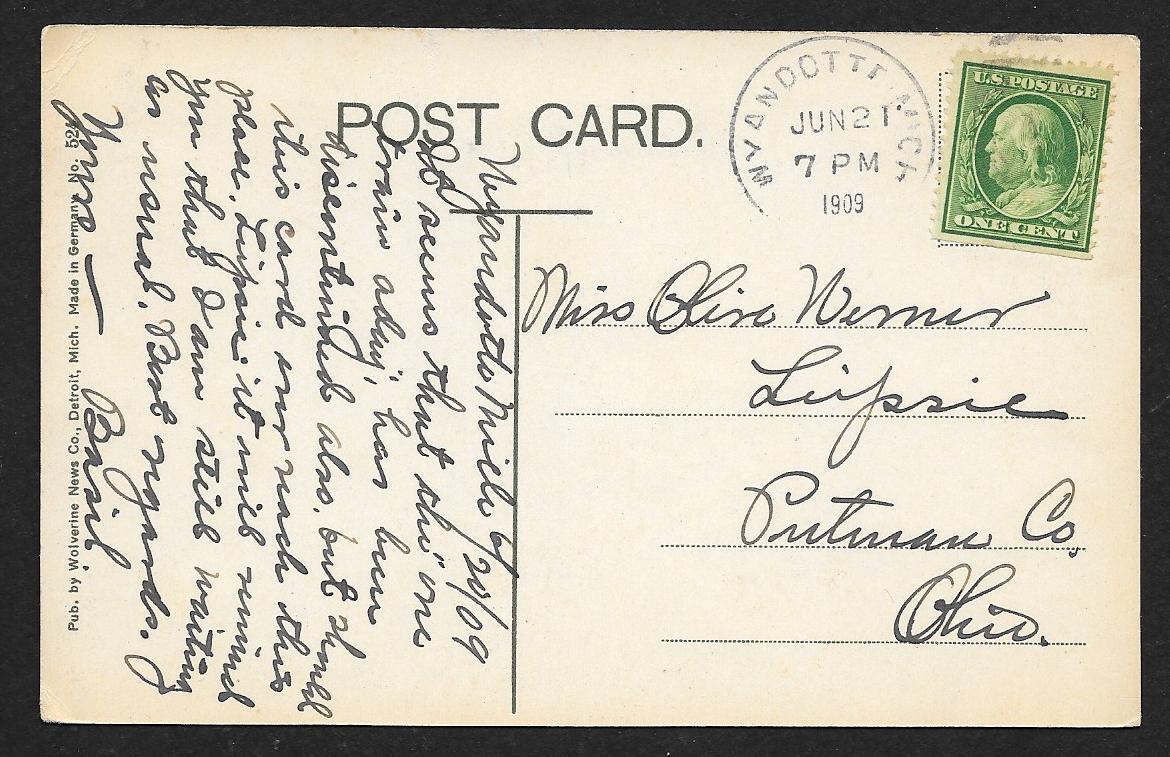 POST CARD.
WYANDOTTE, MICH.
JUN 21
7 PM
1909
U.S. POSTAGE
ONE CENT
Miss Olive Werner
Leipsic
Putnam Co,
Ohio.
Wyandotte Mich 6/20/09
It seems that the "one
train a day", has been
discontinued also, but should
this card ever reach this
place, Leipsic it will remind
you that I am still waiting
as usual. Best regards.
Yours — Basil.
Pub. by Wolverine News Co., Detroit, Mich. Made in Germany. No. 52